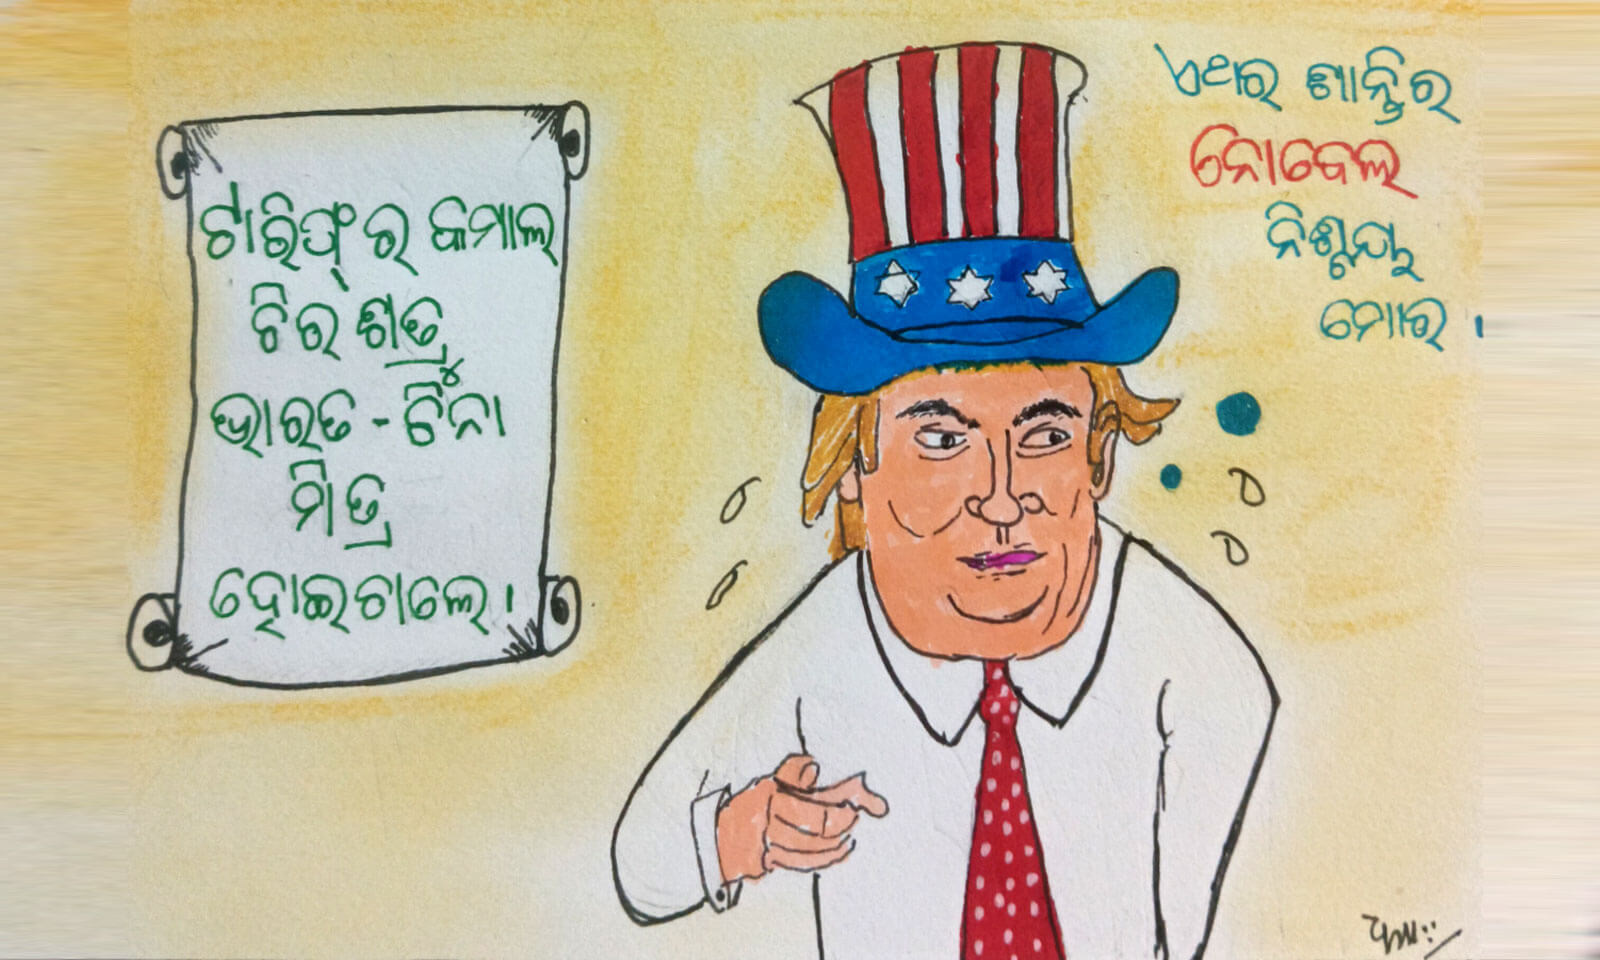 ଟାରିଫ୍ ର କମାଲ୍
ଚିର ଶତ୍ରୁ
ଭାରତ - ଚିନା
ମିତ୍ର
ହୋଇଚାଲେ ।
ଏଥର ଶାନ୍ତିର
ନୋବେଲ
ନିଶ୍ଚୟ
ମୋର ।